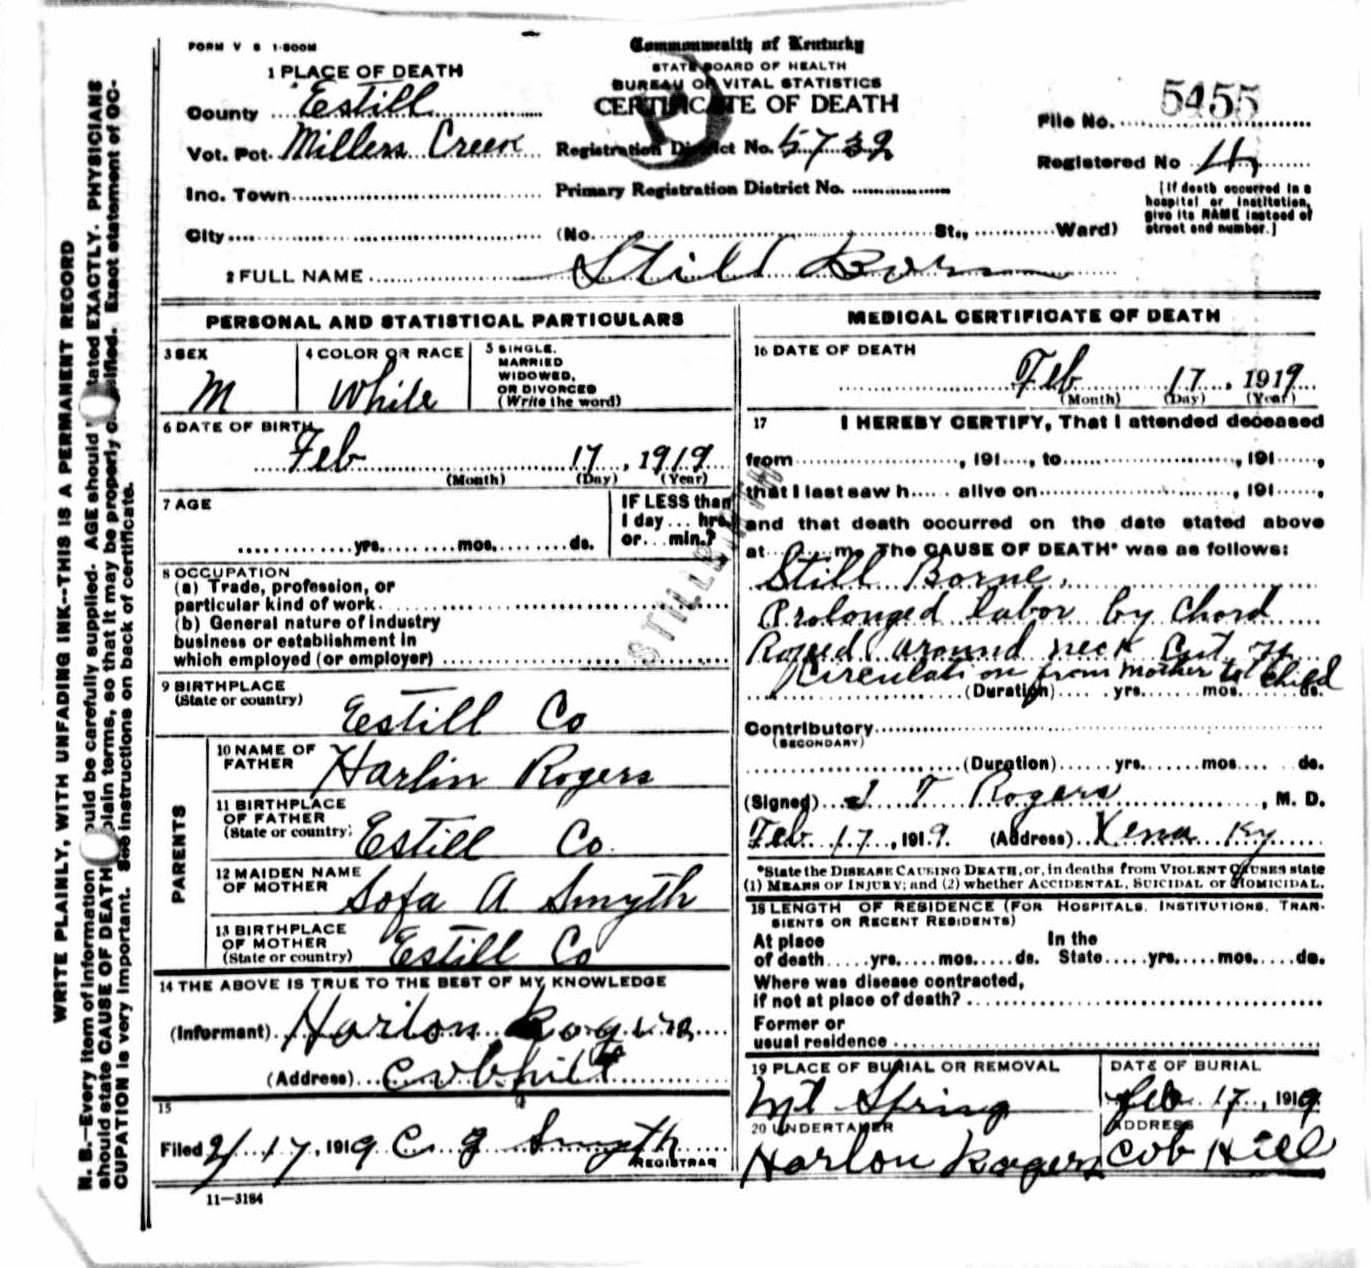 FORM V S 1-500M
Commonwealth of Kentucky
STATE BOARD OF HEALTH
BUREAU OF VITAL STATISTICS
CERTIFICATE OF DEATH
1 PLACE OF DEATH
County Estill
Vot. Pct. Millers Creek
Registration District No. 5739
File No. 5455
Registered No 4
Inc. Town
Primary Registration District No.
[If death occurred in a
hospital or institution,
give its NAME instead of
street and number.]
City (No. St., Ward)
2 FULL NAME Still Born
PERSONAL AND STATISTICAL PARTICULARS
3 SEX
M
4 COLOR OR RACE
White
5 SINGLE,
MARRIED
WIDOWED,
OR DIVORCED
(Write the word)
6 DATE OF BIRTH
Feb 17, 1919
(Month) (Day) (Year)
7 AGE
yrs. mos. ds.
IF LESS than
1 day ... hrs.
or ... min.?
8 OCCUPATION
(a) Trade, profession, or
particular kind of work
(b) General nature of industry
business or establishment in
which employed (or employer)
STILLBIRTH
9 BIRTHPLACE
(State or country)
Estill Co
PARENTS
10 NAME OF
FATHER
Harlin Rogers
11 BIRTHPLACE
OF FATHER
(State or country)
Estill Co.
12 MAIDEN NAME
OF MOTHER
Sofa A Smyth
13 BIRTHPLACE
OF MOTHER
(State or country)
Estill Co
14 THE ABOVE IS TRUE TO THE BEST OF MY KNOWLEDGE
(Informant) Harlon Rogers
(Address) Cobhill
15
Filed 2/17, 1919 C G Smyth
REGISTRAR
11—3184
MEDICAL CERTIFICATE OF DEATH
16 DATE OF DEATH
Feb 17, 1919
(Month) (Day) (Year)
17 I HEREBY CERTIFY, That I attended deceased
from , 191 , to , 191 ,
that I last saw h alive on , 191 ,
and that death occurred on the date stated above
at m. The CAUSE OF DEATH* was as follows:
Still Borne.
Prolonged labor by Chord
Roped around neck Cut off
Circulation from mother to child
(Duration) yrs. mos. ds.
Contributory
(SECONDARY)
(Duration) yrs. mos. ds.
(Signed) J T Rogers, M. D.
Feb 17, 1919. (Address) Xena Ky
*State the DISEASE CAUSING DEATH, or, in deaths from VIOLENT CAUSES state
(1) MEANS OF INJURY; and (2) whether ACCIDENTAL, SUICIDAL or HOMICIDAL.
18 LENGTH OF RESIDENCE (FOR HOSPITALS, INSTITUTIONS, TRAN-
SIENTS OR RECENT RESIDENTS)
At place In the
of death yrs. mos. ds. State yrs. mos. ds.
Where was disease contracted,
if not at place of death?
Former or
usual residence
19 PLACE OF BURIAL OR REMOVAL
Mt Spring
DATE OF BURIAL
Feb 17, 1919
20 UNDERTAKER
Harlon Rogers
ADDRESS
Cob Hill
WRITE PLAINLY, WITH UNFADING INK--THIS IS A PERMANENT RECORD
N. B.—Every item of information should be carefully supplied. AGE should stated EXACTLY. PHYSICIANS
should state CAUSE OF DEATH plain terms, so that it may be properly classified. Exact statement of OC-
CUPATION is very important. See instructions on back of certificate.